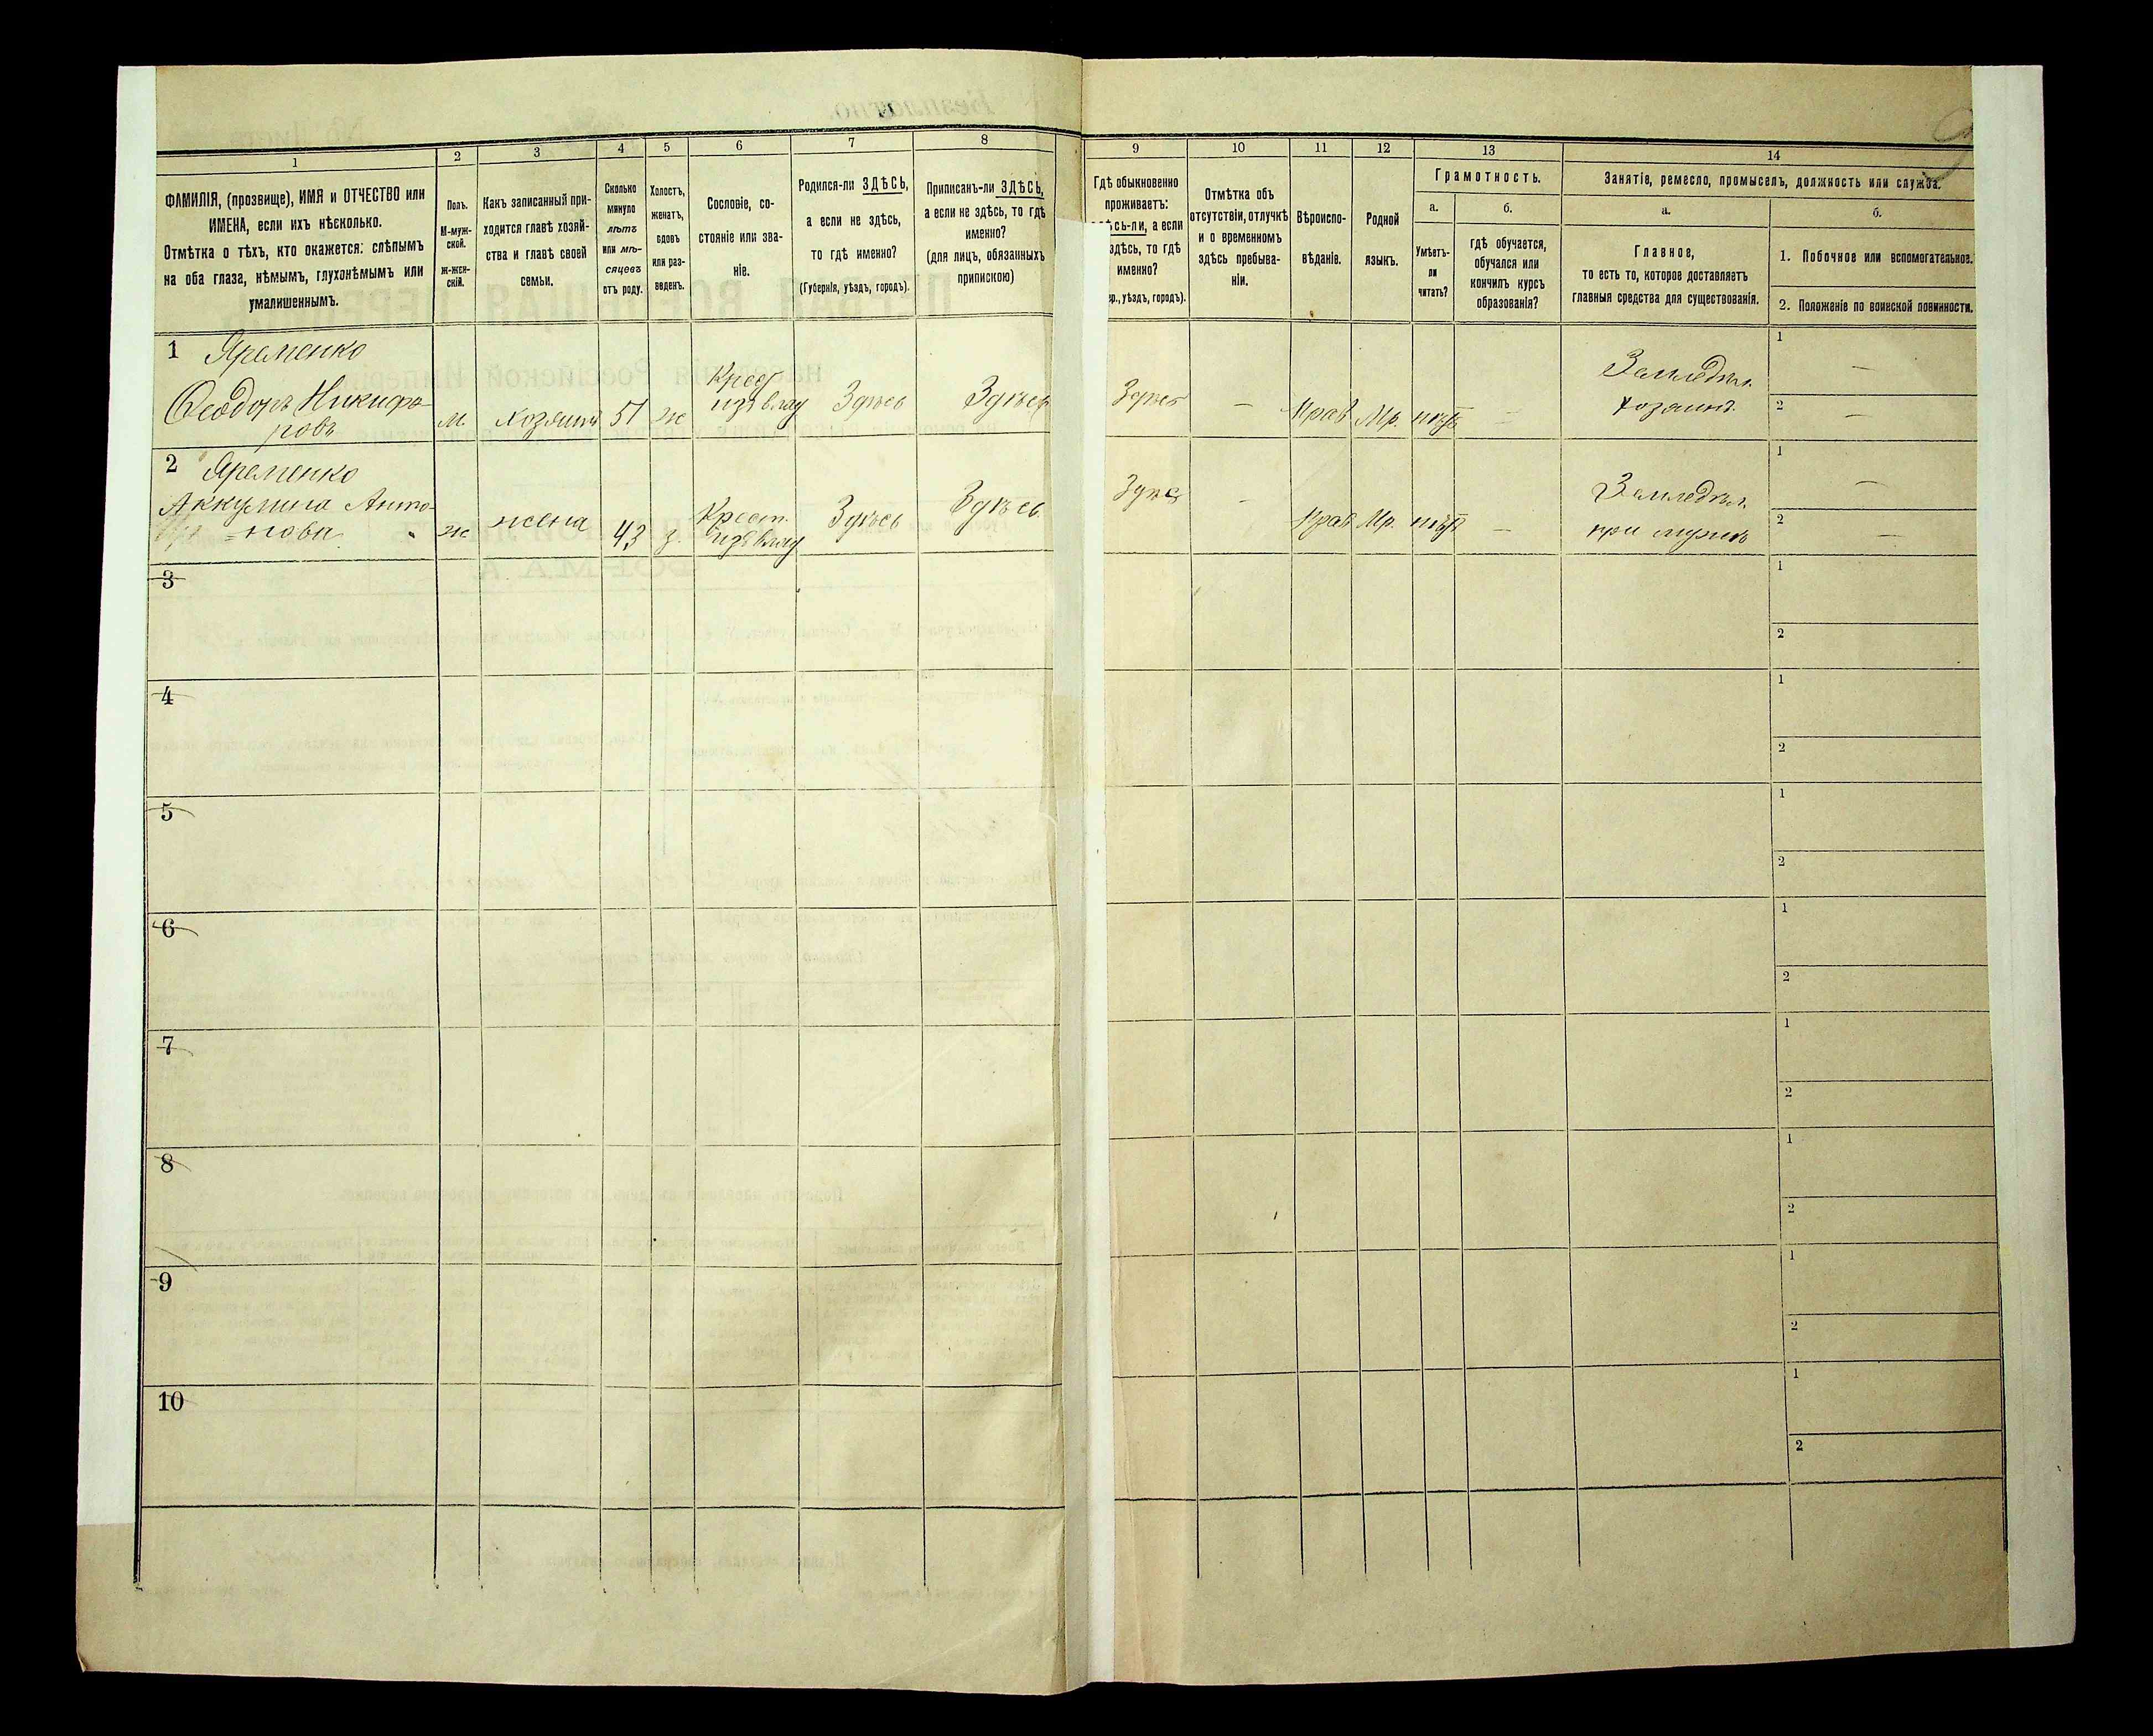 1
2
3
4
5
6
7
8
ФАМИЛІЯ, (прозвище), ИМЯ и ОТЧЕСТВО или
ИМЕНА, если ихъ нѣсколько.
Отмѣтка о тѣхъ, кто окажется: слѣпымъ
на оба глаза, нѣмымъ, глухонѣмымъ или
умалишеннымъ.
Полъ.
М-муж-
ской.
ж-жен-
скій.
Какъ записанный при-
ходится главѣ хозяй-
ства и главѣ своей
семьи.
Сколько
минуло
лѣтъ
или мѣ-
сяцевъ
отъ роду.
Холостъ,
женатъ,
вдовъ
или раз-
веденъ.
Сословіе, со-
стояніе или зва-
ніе.
Родился-ли ЗДѢСЬ,
а если не здѣсь,
то гдѣ именно?
(Губернія, уѣздъ, городъ).
Приписанъ-ли ЗДѢСЬ,
а если не здѣсь, то гдѣ
именно?
(для лицъ, обязанныхъ
припискою)
9
10
11
12
13
14
Гдѣ обыкновенно
проживаетъ:
сь-ли, а если
здѣсь, то гдѣ
именно?
ер., уѣздъ, городъ).
Отмѣтка объ
отсутствіи, отлучкѣ
и о временномъ
здѣсь пребыва-
ніи.
Вѣроиспо-
вѣданіе.
Родной
языкъ.
Грамотность.
а.
Умѣетъ-
ли
читать?
б.
гдѣ обучается,
обучался или
кончилъ курсъ
образованія?
Занятіе, ремесло, промыселъ, должность или служба.
а.
Главное,
то есть то, которое доставляетъ
главныя средства для существованія.
б.
1. Побочное или вспомогательное.
2. Положеніе по воинской повинности.
1 Яременко
Ѳеодоръ Никифо-
ровъ
м. хозяинъ 51 ж
Крест
изъ влад
Здѣсь Здѣсь Здѣсь — Прав Мр. нѣтъ —
Земледѣл.
хозяинъ.
1 —
2 —
2 Яременко
Аккулина Анто-
нова
ж жена 43 з
Крест.
изъ влад
Здѣсь Здѣсь Здѣс — Прав Мр. нѣтъ —
Земледѣл.
при мужѣ
1 —
2 —
3
1
2
4
1
2
5
1
2
6
1
2
7
1
2
8
1
2
9
1
2
10
1
2